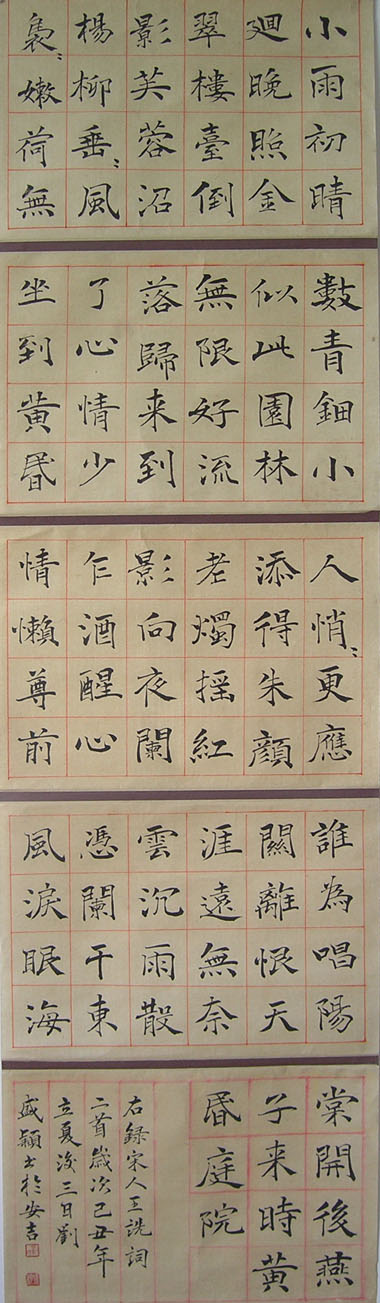 小雨初晴
廻晚照金
翠樓臺倒
影芙蓉沼
楊柳垂〻風
裊〻嫩荷無
數青鈿小
似此園林
無限好流
落歸来到
了心情少
坐到黄昏
人悄〻更應
添得朱顔
老燭摇紅
影向夜闌
乍酒醒心
情懶尊前
誰為唱陽
關離恨天
涯遠無奈
雲沉雨散
憑闌干東
風淚眼海
棠開後燕
子来時黄
昏庭院
右録宋人王詵詞
二首歲次己丑年
立夏後三日劉
盛穎书於安吉